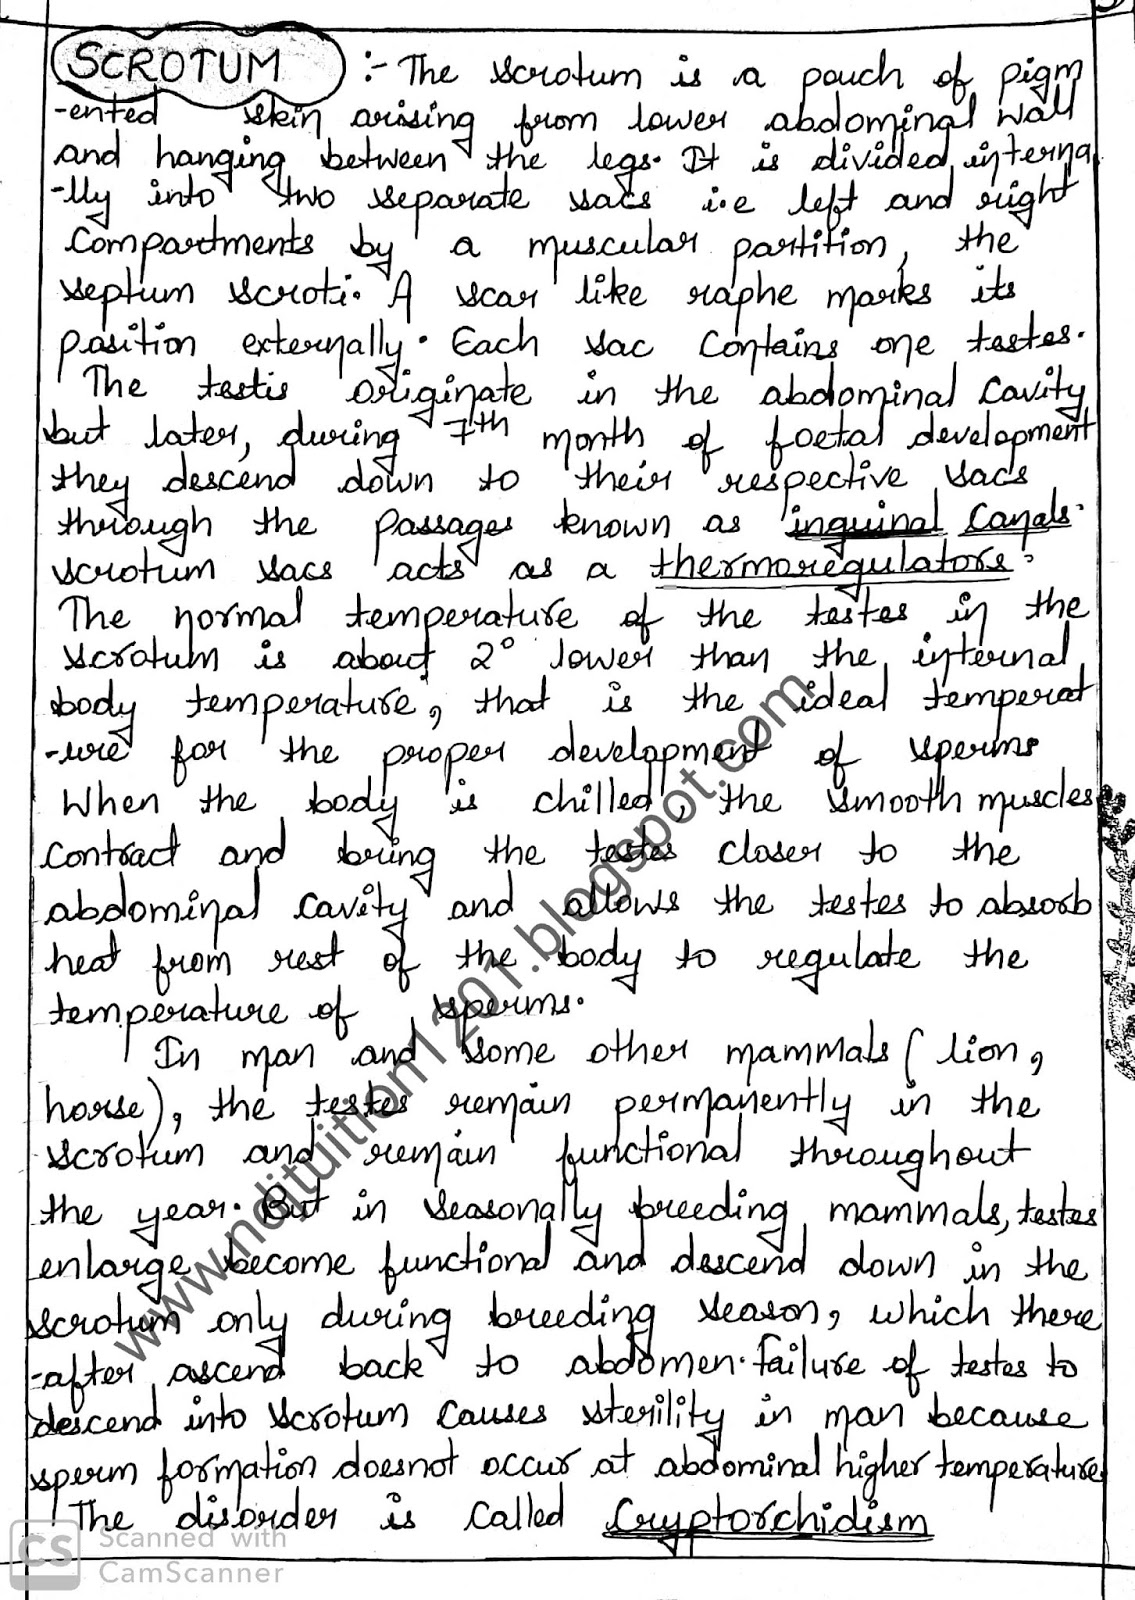 SCROTUM :- The scrotum is a pouch of pigm
-ented skin arising from lower abdominal wall
and hanging between the legs. It is divided interna
-lly into two separate sacs i.e left and right
compartments by a muscular partition, the
septum scroti. A scar like raphe marks its
position externally. Each sac contains one testes.
The testis originate in the abdominal cavity
but later, during 7th month of foetal development
they descend down to their respective sacs
through the passages known as inguinal canals.
scrotum sacs acts as a thermoregulators.
The normal temperature of the testes in the
scrotum is about 2° lower than the internal
body temperature, that is the ideal temperat
-ure for the proper development of sperms
When the body is chilled, the smooth muscles
contract and bring the testes closer to the
abdominal cavity and allows the testes to absorb
heat from rest of the body to regulate the
temperature of sperms.
In man and some other mammals (lion,
horse), the testes remain permanently in the
scrotum and remain functional throughout
the year. But in seasonally breeding mammals, testes
enlarge become functional and descend down in the
scrotum only during breeding season, which there
-after ascend back to abdomen. Failure of testes to
descend into scrotum causes sterility in man because
sperm formation doesnot occur at abdominal higher temperature
The disorder is called Cryptorchidism
www.ndjtuition1201.blogspot.com
CS Scanned with
CamScanner